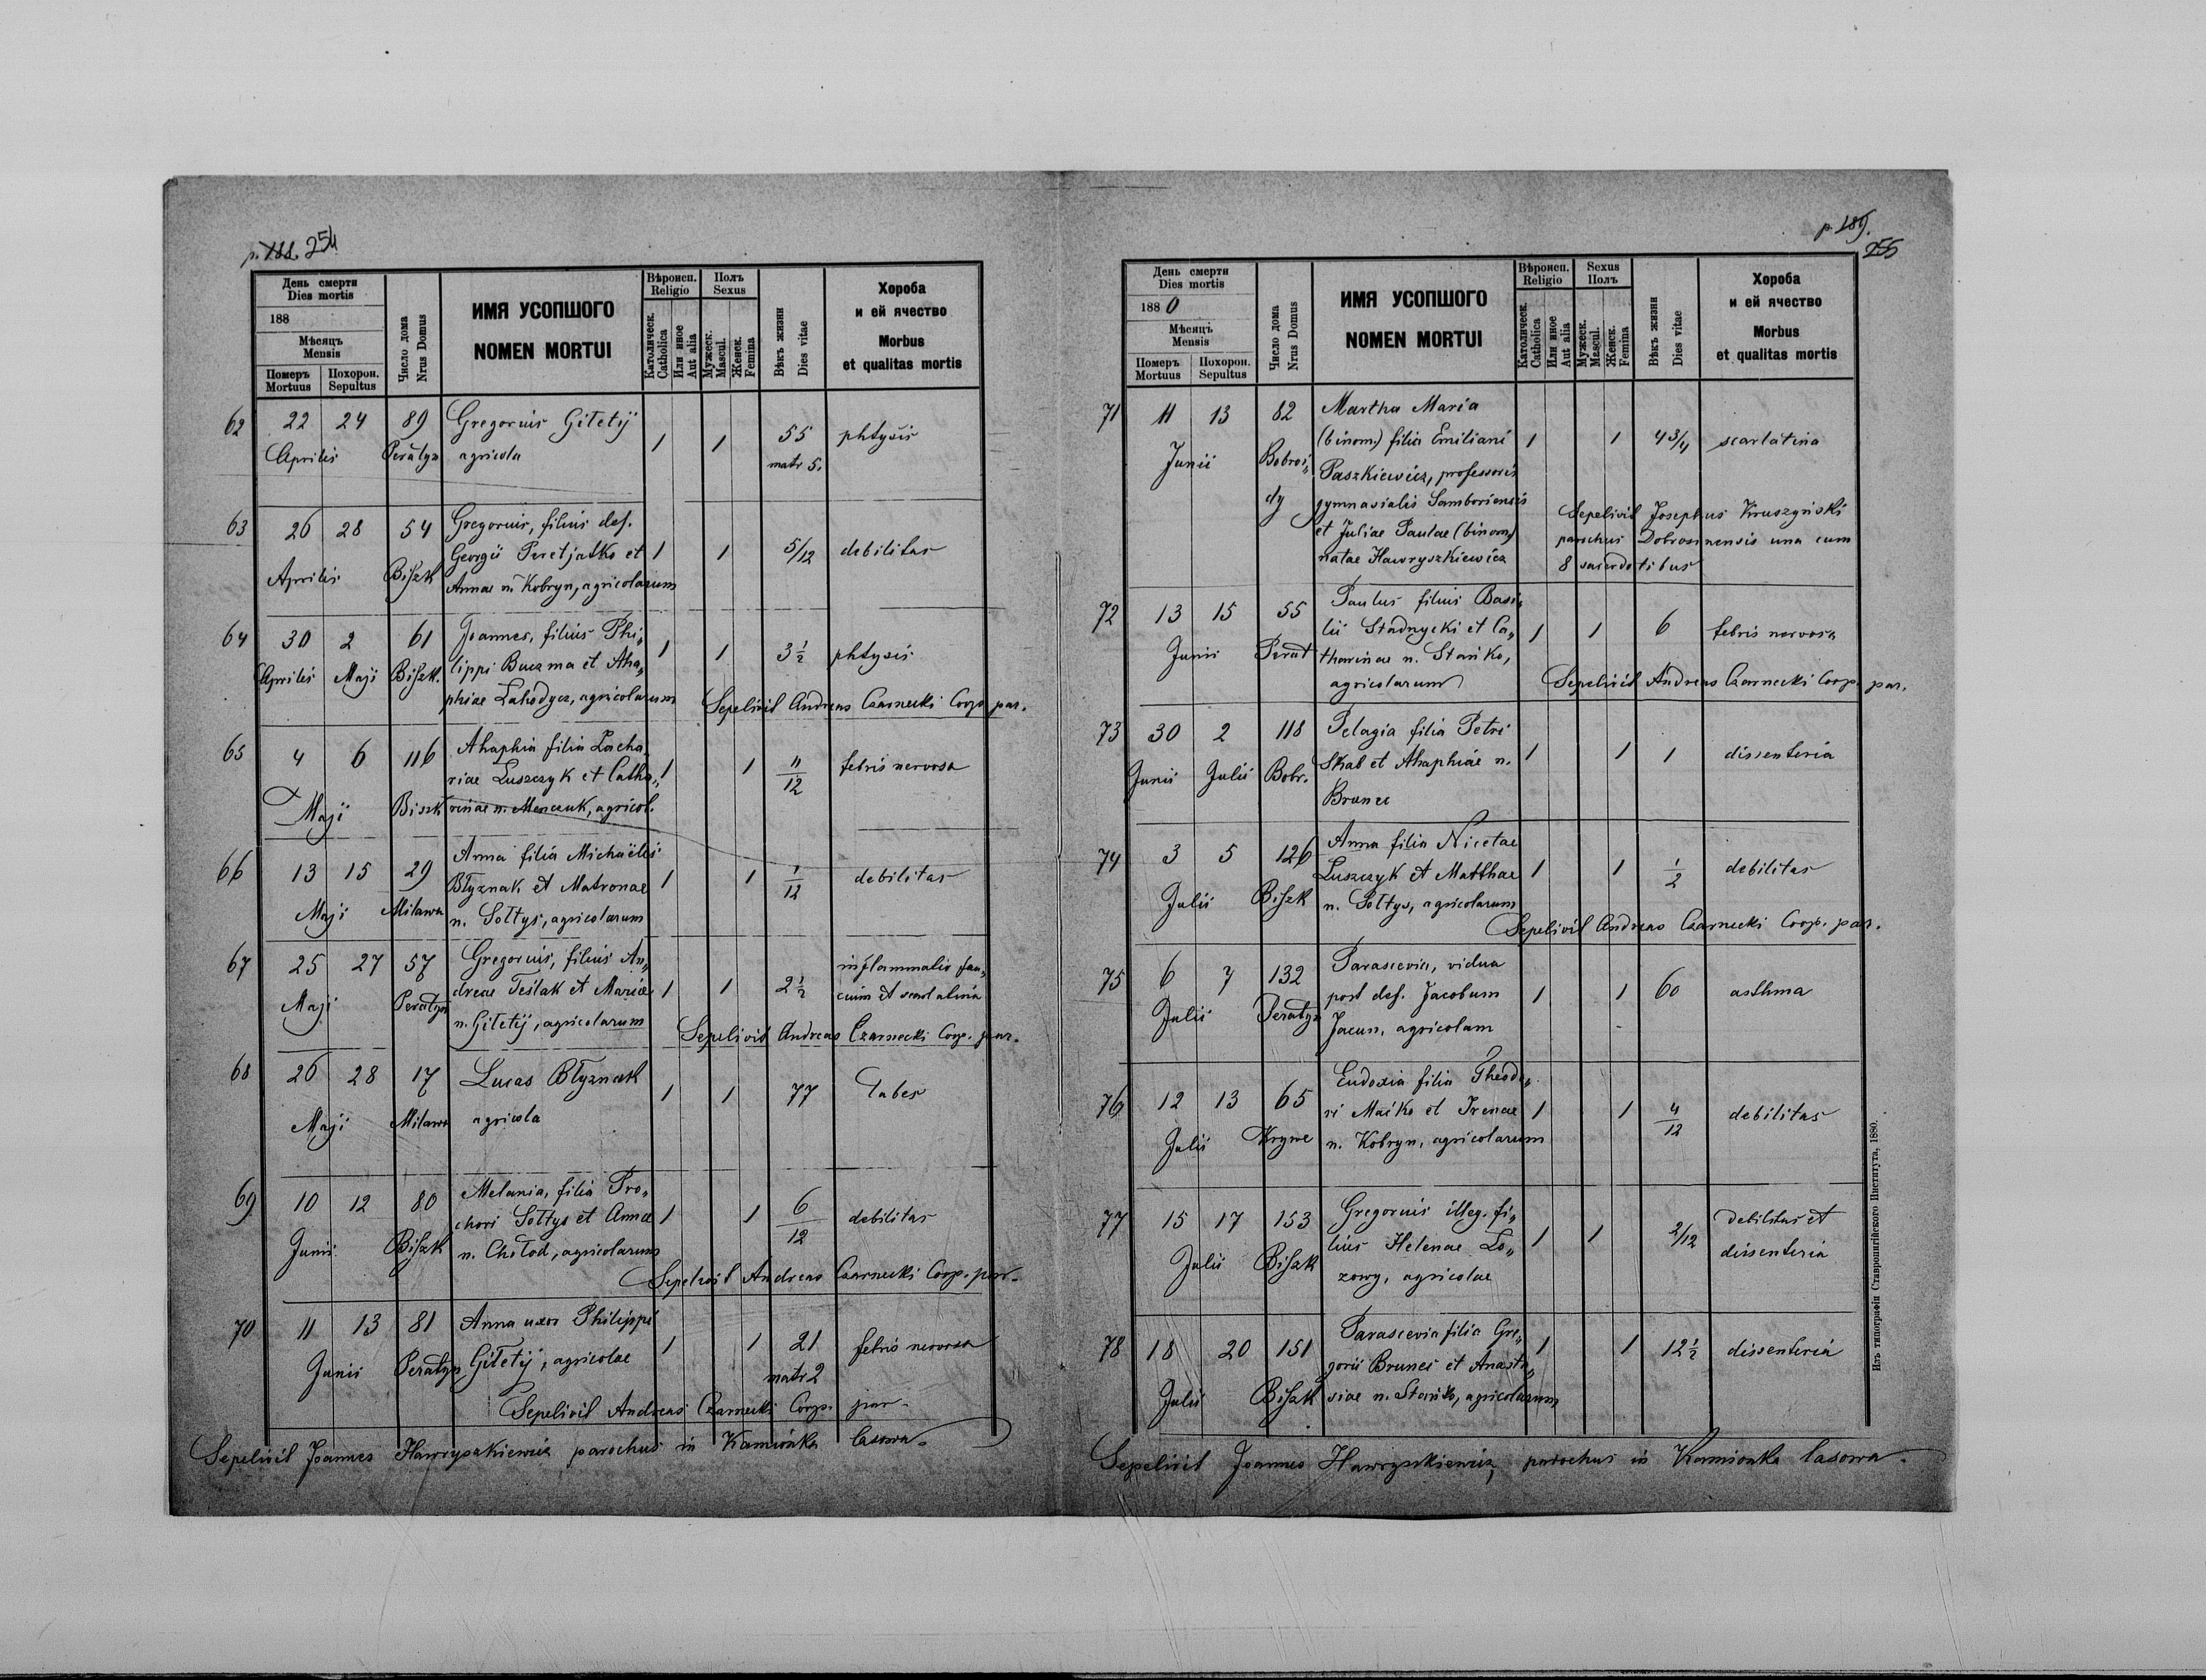 p. 188. 254
День смерти
Dies mortis
188
Мѣсяцъ
Mensis
Померъ
Mortuus
Похорон.
Sepultus
Число дома
Nrus Domus
ИМЯ УСОПШОГО
NOMEN MORTUI
Вѣроисп.
Religio
Католическ.
Catholica
Или иное
Aut alia
Полъ
Sexus
Мужеск.
Mascul.
Женск.
Femina
Вѣкъ жизни
Dies vitae
Хороба
и ей ячество
Morbus
et qualitas mortis
62 22 24 89 Gregorius Giletij 1 1 55 phtysis
Aprilis Peratyn agricola matr 5.
63 26 28 54 Gregorius, filius def.
Georgii Peretjatko et 1 1 5/12 debilitas
Aprilis Biszk Annae n. Kobryn, agricolarum
64 30 2 61 Joannes, filius Phi„
lippi Buczma et Aha„ 1 1 3 1/2 phtysis
Aprilis Maji Biszk. phiae Lahodycz, agricolarum
Sepelivit Andreas Czarnecki Coop. par.
65 4 6 116 Ahaphia filia Zacha„
riae Luszczyk et Catha„ 1 1 11/12 febris nervosa
Maji Biszk rinae n. Menczuk, agricol.
66 13 15 29 Anna filia Michaëlis
Błyznak et Matronae 1 1 1/12 debilitas
Maji Milawa n. Sołtys, agricolarum
67 25 27 57 Gregorius, filius An„ inflammatio fau„
dreae Teslak et Mariae 1 1 2 1/2 cium et scarlatina
Maji Peratyn n. Giletij, agricolarum
Sepelivit Andreas Czarnecki Coop. par.
68 26 28 17 Lucas Błyznak 1 1 77 Tabes
Maji Milawa agricola
69 10 12 80 Melania, filia Pro„
chori Sołtys et Annae 1 1 6/12 debilitas
Junii Biszk n. Chołod, agricolarum
Sepelivit Andreas Czarnecki Coop. par.
70 11 13 81 Anna uxor Philippi 1 1 21 febris nervosa
Junii Peratyn Giletij, agricolae matr 2
Sepelivit Andreas Czarnecki Coop. par.
Sepelivit Joannes Hawryszkiewicz parochus in Kamionka lasowa.
p. 189.
255
День смерти
Dies mortis
1880
Мѣсяцъ
Mensis
Померъ
Mortuus
Похорон.
Sepultus
Число дома
Nrus Domus
ИМЯ УСОПШОГО
NOMEN MORTUI
Вѣроисп.
Religio
Католическ.
Catholica
Или иное
Aut alia
Sexus
Полъ
Мужеск.
Mascul.
Женск.
Femina
Вѣкъ жизни
Dies vitae
Хороба
и ей ячество
Morbus
et qualitas mortis
71 11 13 82 Martha Maria
(binom.) filia Emiliani 1 1 4 3/4 scarlatina
Junii Bobroi„ Paszkiewicz, professoris
dy gymnasialis Samboriensis Sepelivit Josephus Kruszyński
et Juliae Paulae (binom) parochus Dobrosinensis una cum
natae Hawryszkiewicz 8 sacerdotibus
72 13 15 55 Paulus filius Basi„
lii Stadnycki et Ca„ 1 1 6 febris nervosa
Junii Perat tharinae n. Stańko,
agricolarum Sepelivit Andreas Czarnecki Coop. par.
73 30 2 118 Pelagia filia Petri
Skab et Ahaphiae n. 1 1 1 dissenteria
Junii Julii Bobr. Brunec
74 3 5 126 Anna filia Nicetae
Luszczyk et Matthae 1 1 1/2 debilitas
Julii Biszk n. Sołtys, agricolarum
Sepelivit Andreas Czarnecki Coop. par.
75 6 7 132 Parascevia, vidua
post def. Jacobum 1 1 60 asthma
Julii Peratyn Jacun, agricolam
76 12 13 65 Eudoxia filia Theodo„
ri Maiko et Irenae 1 1 4/12 debilitas
Julii Krywe n. Kobryn, agricolarum
77 15 17 153 Gregorius illeg. fi„ debilitas et
lius Helenae Lo„ 1 1 2/12 dissenteria
Julii Biszk zowy, agricolae
78 18 20 151 Parascevia filia Gre„ 1 1 12 1/2 dissenteria
gorii Brunec et Anasta„
Julii Biszk siae n. Stańko, agricolarum
Sepelivit Joannes Hawryszkiewicz, parochus in Kamionka lasowa.
Изъ типографіи Ставропигійского Института, 1880.